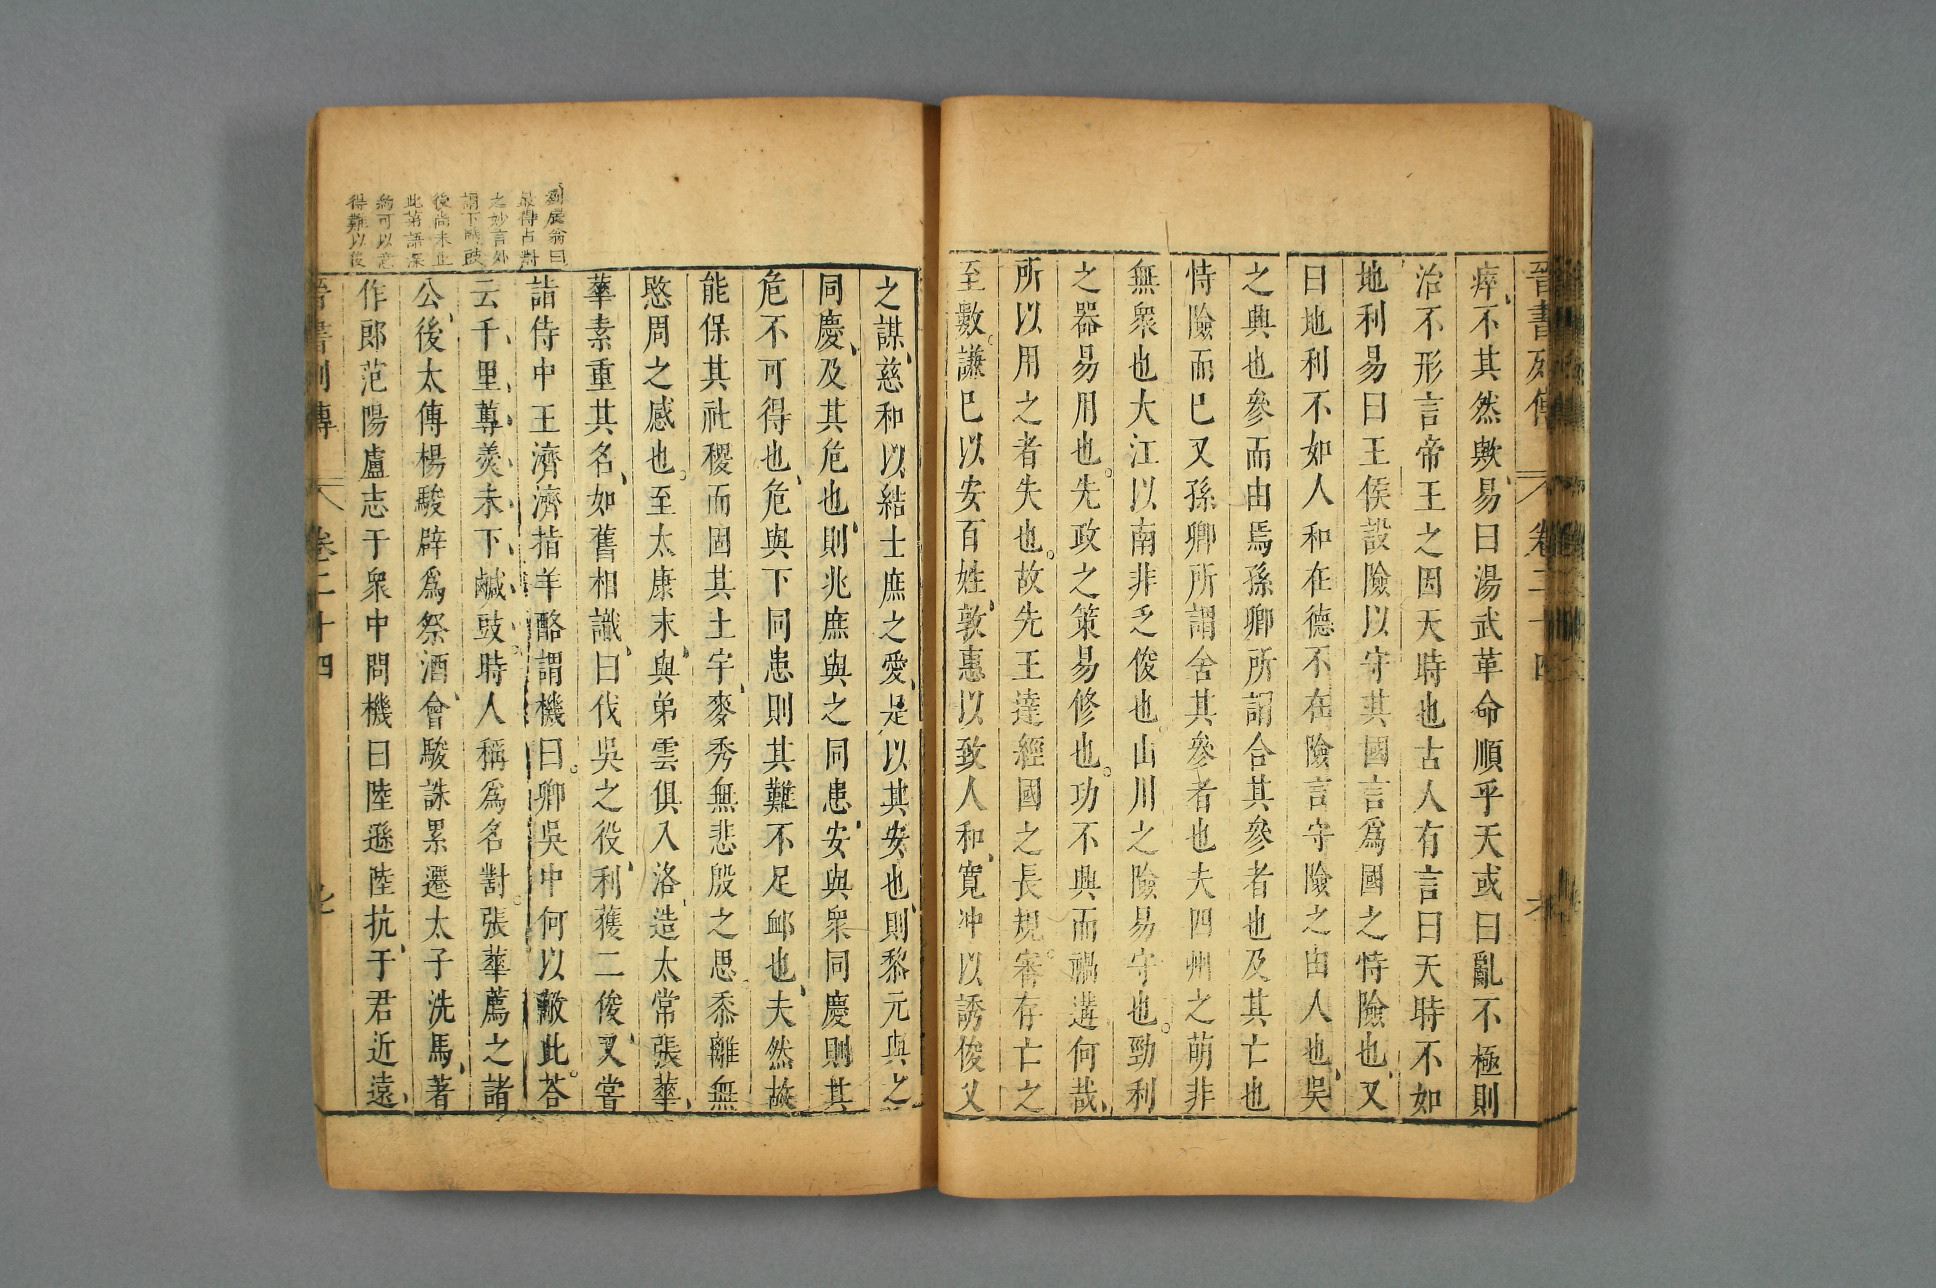 晉書列傳 卷二十四
瘁不其然歟易曰湯武革命順乎天或曰亂不極則
治不形言帝王之因天時也古人有言曰天時不如
地利易曰王侯設險以守其國言爲國之恃險也又
曰地利不如人和在德不在險言守險之由人也吳
之興也參而由焉孫卿所謂合其參者也及其亡也
恃險而已又孫卿所謂舍其參者也夫四州之萌非
無衆也大江以南非乏俊也山川之險易守也勁利
之器易用也先政之策易修也功不興而禍遘何哉
所以用之者失也故先王達經國之長規審存亡之
至數謙已以安百姓敦惠以致人和寬沖以誘俊乂
之謀慈和以結士庶之愛是以其安也則黎元與之
同慶及其危也則兆庶與之同患安與衆同慶則其
危不可得也危與下同患則其難不足卹也夫然故
能保其社稷而固其土宇麥秀無悲殷之思黍離無
愍周之感也至太康末與弟雲俱入洛造太常張華
華素重其名如舊相識曰伐吳之役利獲二俊又嘗
詣侍中王濟濟指羊酪謂機曰卿吳中何以敵此荅
云千里蓴羹未下鹹豉時人稱爲名對張華薦之諸
公後太傅楊駿辟爲祭酒會駿誅累遷太子洗馬著
作郎范陽盧志于衆中問機曰陸遜陸抗于君近遠
晉書列傳 卷二十四
劉辰翁曰
最得占對
之妙言外
謂下鹹豉
後尚未止
此第語深
約可以意
得難以後